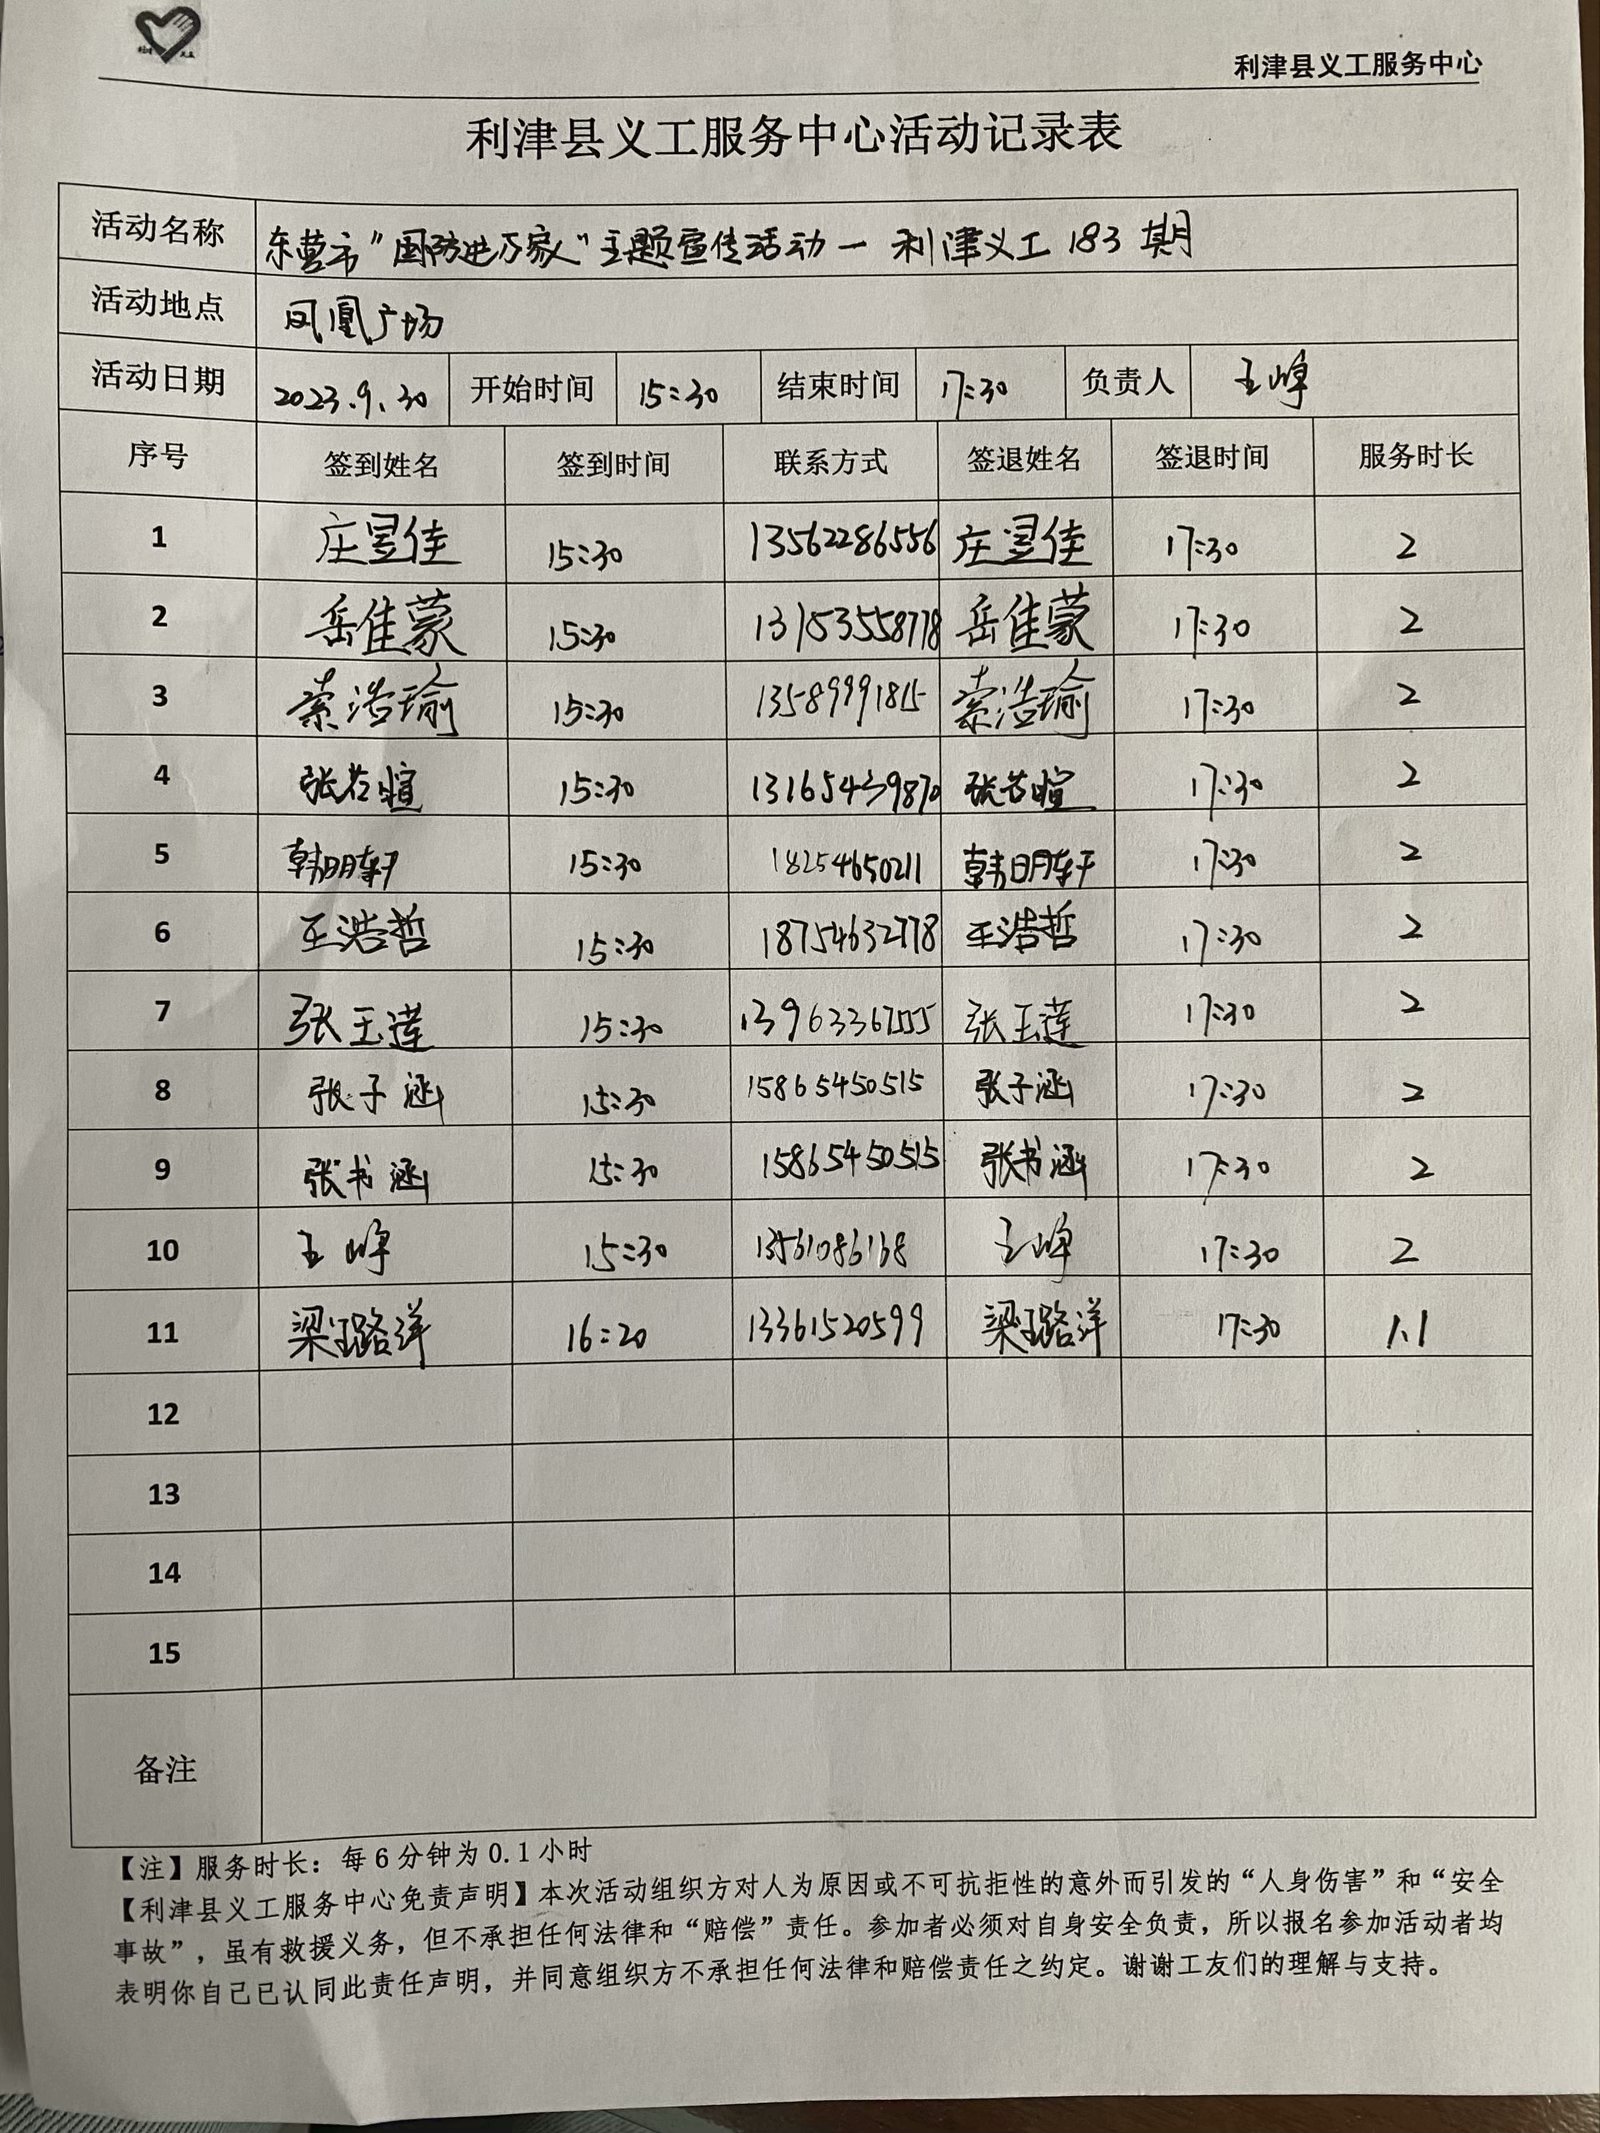 利津县义工服务中心
利津县义工服务中心活动记录表
活动名称 东营市“国防进万家”主题宣传活动一利津义工183期
活动地点 凤凰广场
活动日期 2023.9.30 开始时间 15:30 结束时间 17:30 负责人 王峥
序号 签到姓名 签到时间 联系方式 签退姓名 签退时间 服务时长
1 庄昱佳 15:30 13562286556 庄昱佳 17:30 2
2 岳佳蒙 15:30 13153558778 岳佳蒙 17:30 2
3 索浩瑜 15:30 13589991815 索浩瑜 17:30 2
4 张芯暄 15:30 13165439870 张芯暄 17:30 2
5 韩明轩 15:30 18254650211 韩明轩 17:30 2
6 王浩哲 15:30 18754632778 王浩哲 17:30 2
7 张玉莲 15:30 张玉莲 17:30 2
8 张子涵 15:30 15865450515 张子涵 17:30 2
9 张书涵 15:30 15865450515 张书涵 17:30 2
10 王峥 15:30 13561086168 王峥 17:30 2
11 梁璐洋 16:20 13361520599 梁璐洋 17:30 1.1
12
13
14
15
备注
【注】服务时长：每6分钟为0.1小时
【利津县义工服务中心免责声明】本次活动组织方对人为原因或不可抗拒性的意外而引发的“人身伤害”和“安全
事故”，虽有救援义务，但不承担任何法律和“赔偿”责任。参加者必须对自身安全负责，所以报名参加活动者均
表明你自己已认同此责任声明，并同意组织方不承担任何法律和赔偿责任之约定。谢谢工友们的理解与支持。